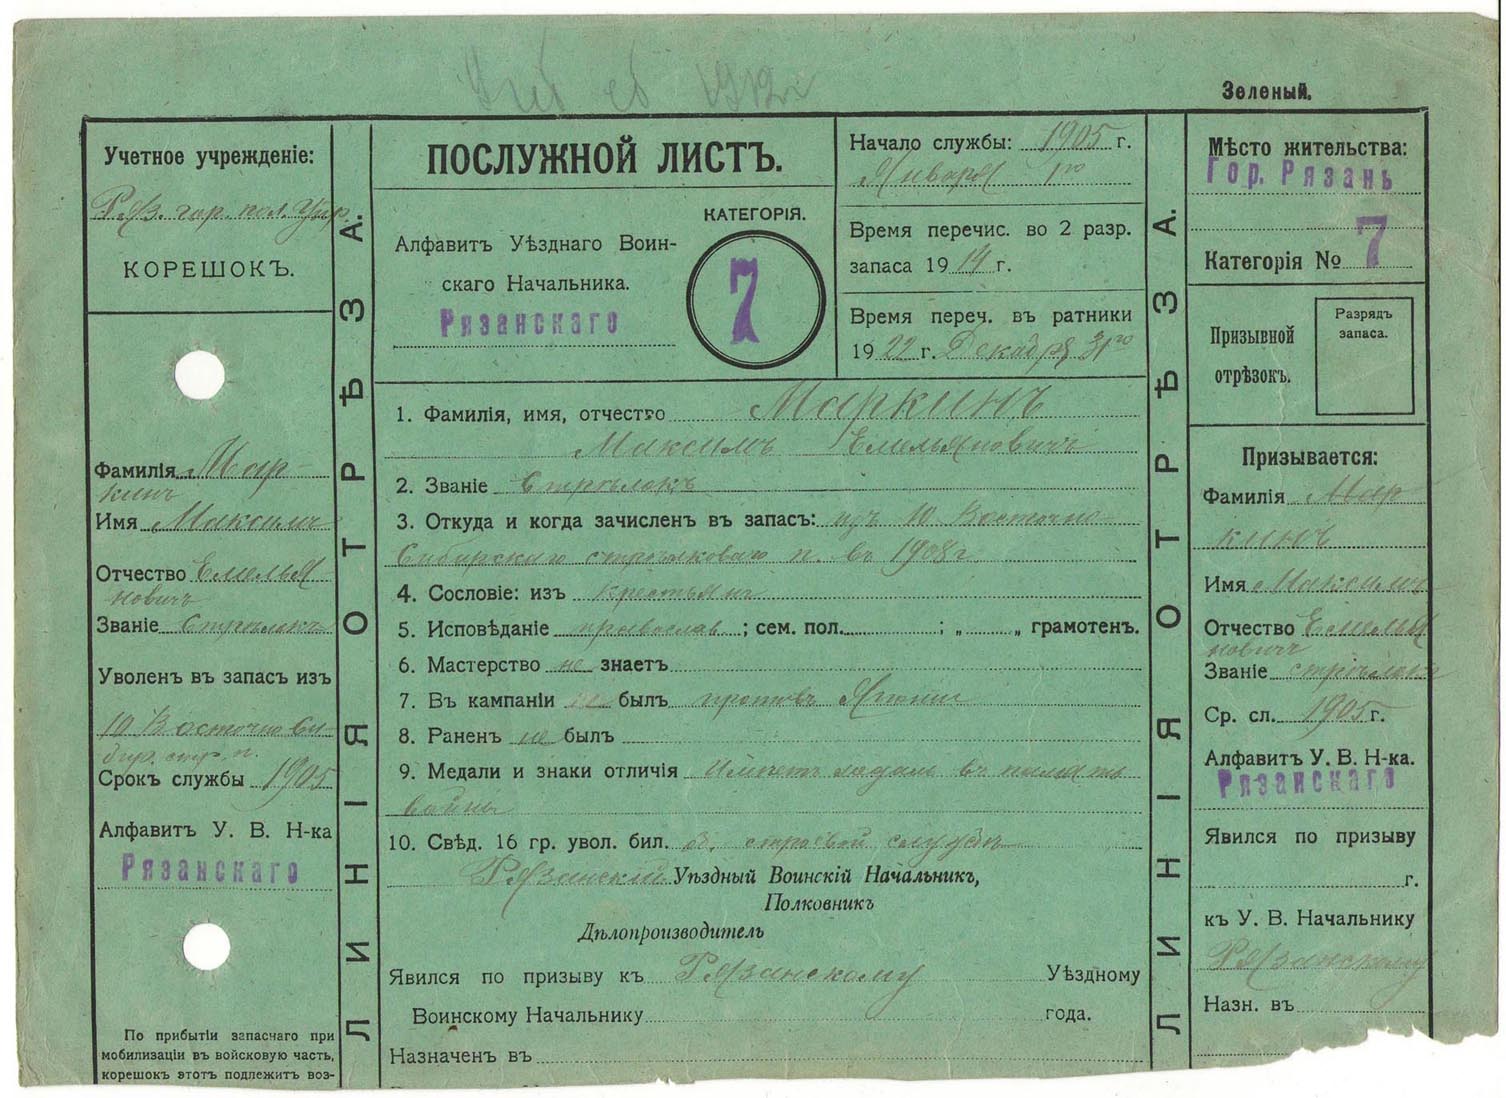 Зеленый.
Учетное учрежденіе:
Ряз. гор. пол. Упр.
КОРЕШОКЪ.
Фамилія Мар-
кинъ
Имя Максимъ
Отчество Емелья
новичъ
Званіе Стрѣлокъ
Уволенъ въ запасъ изъ
10 Восточно Си
бир. стр. п.
Срокъ службы 1905
Алфавитъ У. В. Н-ка
Рязанскаго
По прибытіи запаснаго при
мобилизаціи въ войсковую часть,
корешокъ этотъ подлежитъ воз-
ЛИНІЯ ОТРѢЗА.
ПОСЛУЖНОЙ ЛИСТЪ.
Алфавитъ Уѣзднаго Воин-
скаго Начальника.
Рязанскаго
КАТЕГОРІЯ.
7
Начало службы: 1905 г.
Января 1го
Время перечис. во 2 разр.
запаса 1914 г.
Время переч. въ ратники
1922 г. Декабря 31го
1. Фамилія, имя, отчество Маркинъ
Максимъ Емельяновичъ
2. Званіе Стрѣлокъ
3. Откуда и когда зачисленъ въ запасъ: изъ 10 Восточно-
Сибирскаго стрѣлковаго п. въ 1908 г.
4. Сословіе: изъ крестьянъ
5. Исповѣданіе православ; сем. пол. ; „ „ грамотенъ.
6. Мастерство не знаетъ
7. Въ кампаніи не былъ противъ Японіи
8. Раненъ не былъ
9. Медали и знаки отличія Имѣетъ медаль въ память
войны
10. Свѣд. 16 гр. увол. бил. строевой службѣ
Рязанскій Уѣздный Воинскій Начальникъ,
Полковникъ
Дѣлопроизводитель
Явился по призыву къ Рязанскому Уѣздному
Воинскому Начальнику года.
Назначенъ въ
ЛИНІЯ ОТРѢЗА.
Мѣсто жительства:
Гор. Рязань
Категорія № 7
Призывной
отрѣзокъ.
Разрядъ
запаса.
Призывается:
Фамилія Мар
кинъ
Имя Максимъ
Отчество Емелья
новичъ
Званіе стрѣлокъ
Ср. сл. 1905 г.
Алфавитъ У. В. Н-ка.
Рязанскаго
Явился по призыву
г.
къ У. В. Начальнику
Рязанскому
Назн. въ